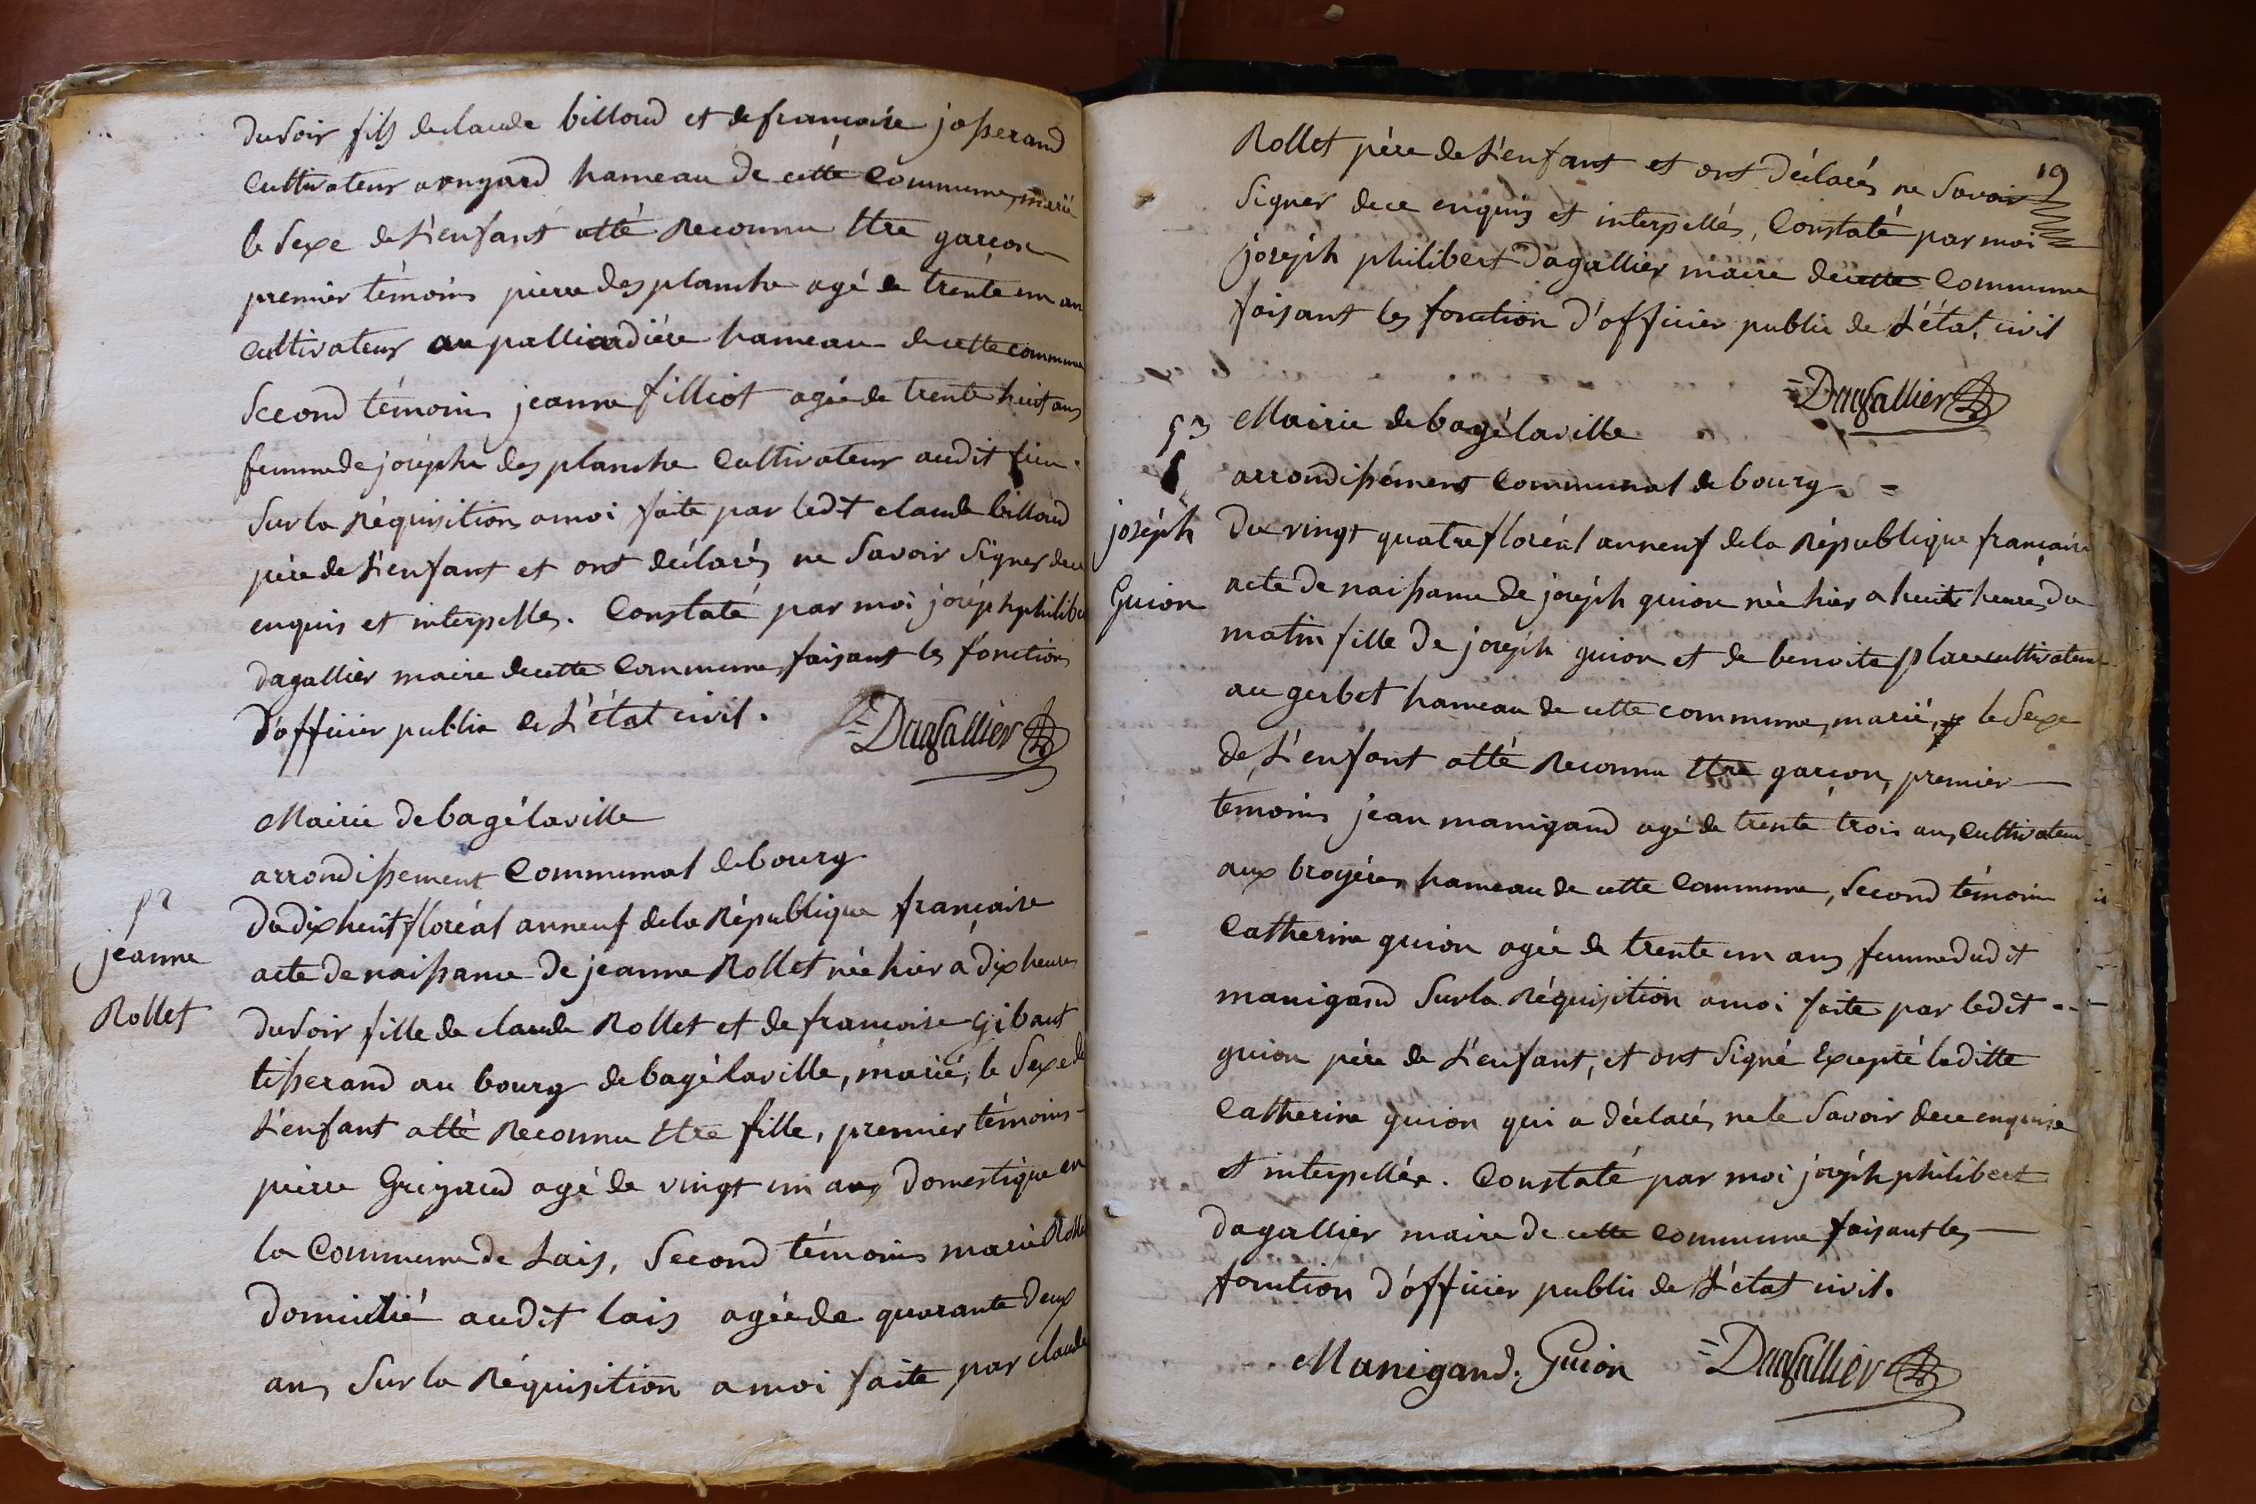 du soir fils declaude billoud et defrancoise josserand
cultivateur a hameau de cette commune, marié
le sexe de L'enfant atté Reconnu Etre garcon
premier témoins pierre desplanche agé de trente un an
cultivateur au palliardiére hameau decette commune
Second témoins jeanne filliot agée de trente huit ans
femme de joséphe desplanche Cultivateur audit lieu.
Sur la Réquisition amoi faite par ledt claude billoud
pére de L'enfant et ont déclarés ne Savoir Signer dece
enquis et interpellés. Constaté par moi joséph philibe
dagallier maire decette Commune, faisant les fonction
d'officier public de L'état civil.
=Dagallier
Mairie debagélaville
arrondissement Communal debourg
52
jéanne
Rollet
Du dixhuit floréal anneuf dela République française
acte de naissance de jeanne Rollet née hier a dix heures
dusoir fille de claude Rollet et de francoise gibaut
tisserand au bourg debagélaville, marié, le Sexe de
L'enfant atté Reconnu Etre fille, premier témoins-
pierre Grignud agé de vingt un ans Domestique en
la Commune de Lais, Second témoins marie Rolle
domicilié audit lais agéede quarante deux
ans Sur la Réquisition amoi faite par claude
19
Rollet pére de L'enfant et ont déclarés ne Savoir
Signer dece enquis et interpellés, Constaté par moi
joséph philibert Dagallier maire decette Commune
faisant les fonction d'officier public de L'état, civil
=Dagallier
53
joséph
Guion
Mairie debagélaville
arrondissement Communal de bourg =
Du vingt quatre floréal anneuf dela République française
acte de naissance de joséph guion née hier a huit heures du
matin fille de joséph guion et de benoite place cultivateur
au gerbet hameau de cette commune, marié, le Sexe
de L'enfant atté Reconnu Etre garcon, premier
temoins jean manigand agé de trente trois ans, Cultivateur
aux broyéres hameau de cette Commune, Second témoin
Catherine guion agée de trente un ans femme dudit
manigand Sur la Réquisition amoi faite par ledit
guion pére de L'enfant, et ont Signé Excepté laditte
Catherine guion qui a déclarés ne le Savoir dece enquise
et interpellée. Constaté par moi joséph philibert
dagallier maire de cette Commune faisant les
fonction d'officier public de L'état civil.
Manigand. Guion =Dagallier